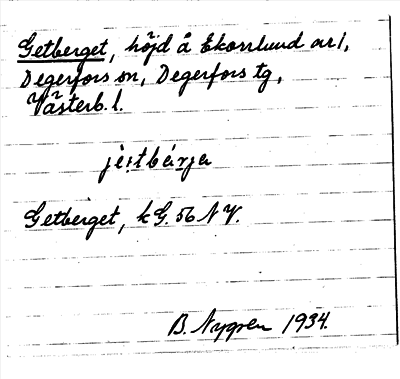 Getberget, höjd å Ekorrlund nr 1,
Degerfors sn, Degerfors tg,
Västerb. l.
jè:tbárja
Getberget, k G. 56 N V.
B. Nygren 1934.